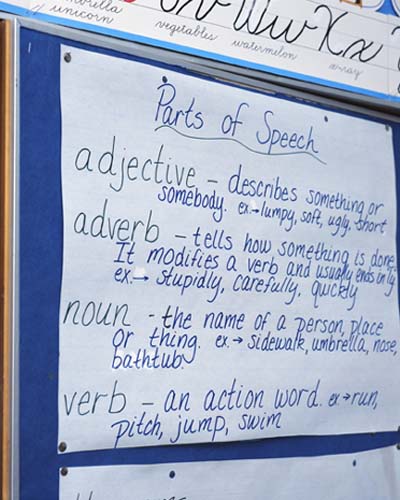 umbrella
unicorn
vegetables
Ww
watermelon
Xx
x-ray
Parts of Speech
adjective – describes something or
somebody. ex.→ lumpy, soft, ugly, short
adverb – tells how something is done.
It modifies a verb and usually ends in ly
ex.→ stupidly, carefully, quickly
noun - the name of a person, place
or thing. ex.→ sidewalk, umbrella, nose,
bathtub.
verb – an action word. ex.→ run,
pitch, jump, swim